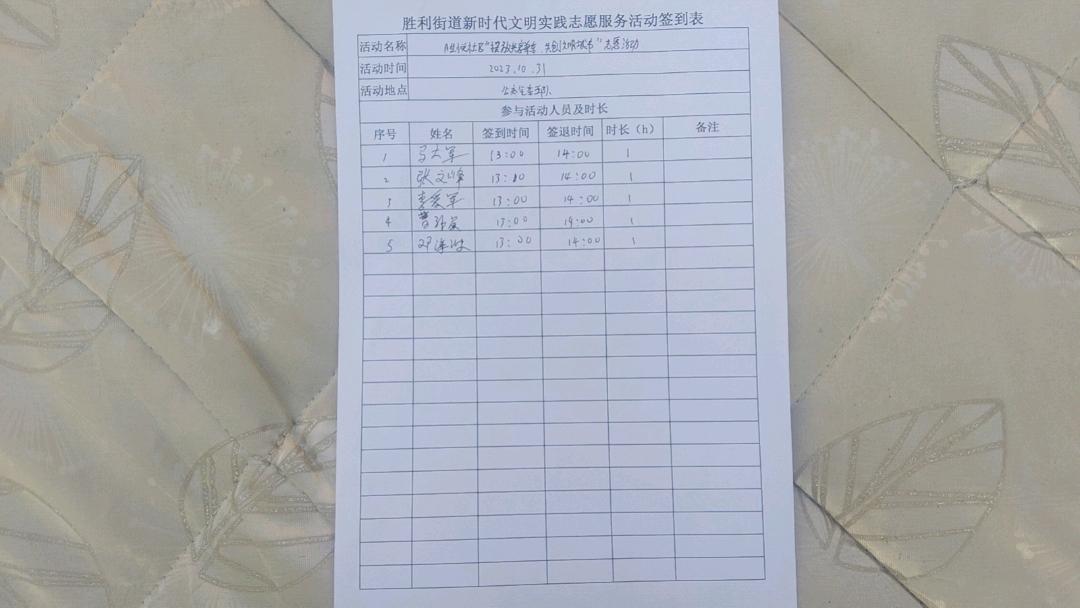 胜利街道新时代文明实践志愿服务活动签到表
活动名称 "共创文明城市"志愿活动
活动时间 2023.10.31
活动地点
参与活动人员及时长
序号 姓名 签到时间 签退时间 时长（h） 备注
1 马大军 13:00 14:00 1
2 张文峰 13:00 14:00 1
3 李爱军 13:00 14:00 1
4 13:00 14:00 1
5 13:00 14:00 1